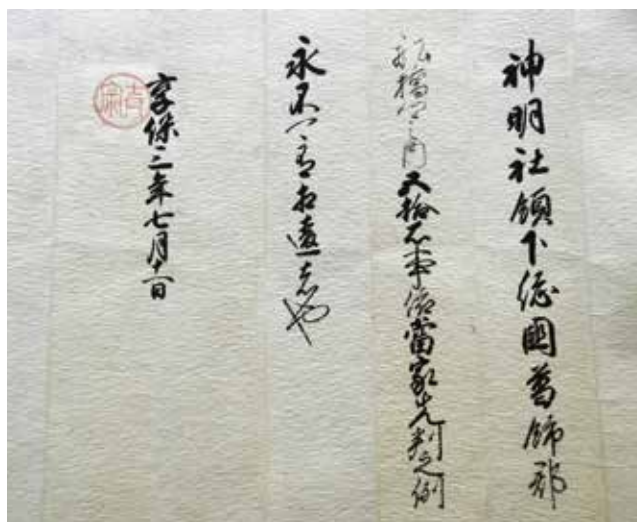 神明社領下総國葛飾郡
船橋郷之内五拾石事依當家先判之例
永不可有相違者也
享保三年七月十一日
吉宗